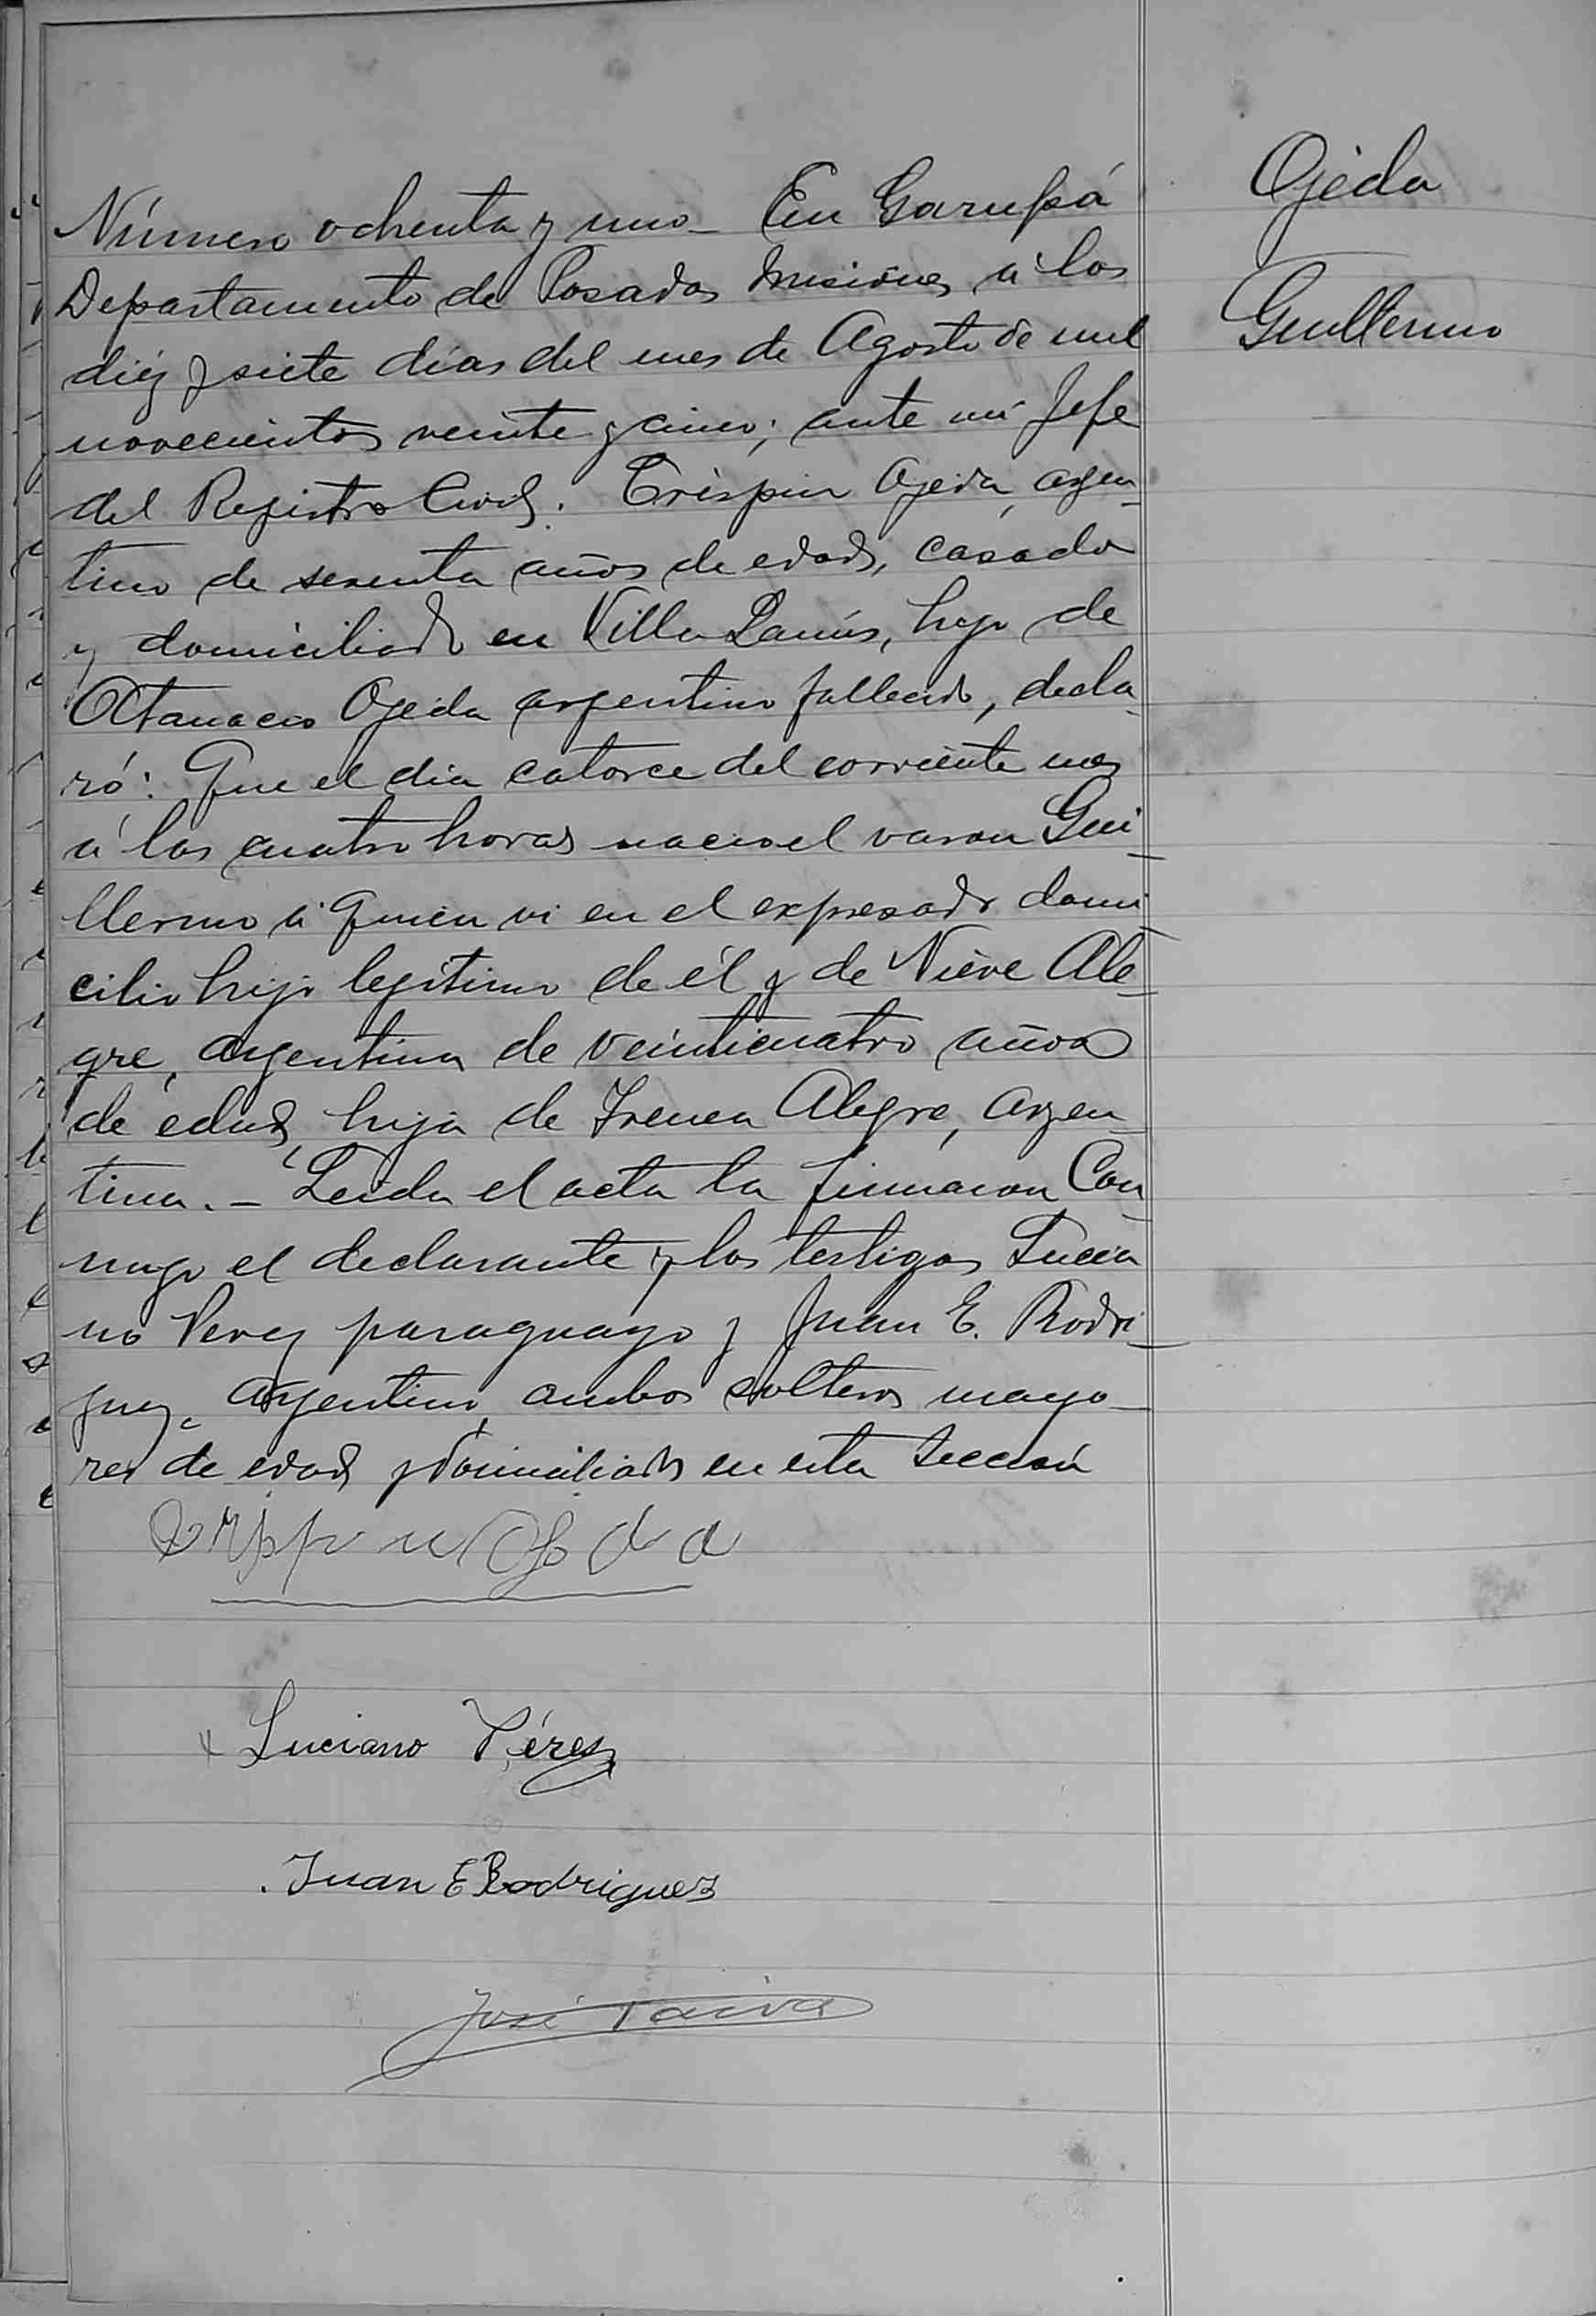 Ojeda
Guillermo
Número ochenta y uno_ En Garupá
Departamento de Posadas Misiones á los
diéz y siete días del mes de Agosto de mil
novecientos veinte y cinco; ante mi Jefe
del Registro Civil: Crispin Ojeda, argen-
tino de sesenta años de edad, casado
y domiciliado en Villa Lanús, hijo de
Otanacio Ojeda argentino fallecido, decla-
ró: Que el día catorce del corriente mes
á las cuatro horas nacio el varon Gui-
llermo á quien vi en el expresado domi-
cilio hijo legítimo de él y de Nieve Ale-
gre, argentina de veinticuatro años
de edad, hija de Irenea Alegre, argen-
tina._ Leida el acta la firmaron Con-
migo el declarante y los testigos Lucia
no Perez paraguayo y Juan E. Rodri-
guez argentino, ambos solteros mayo-
res de edad y domiciliados en esta Sección
Luciano Pérez
Juan E Rodriguez
José Paiva